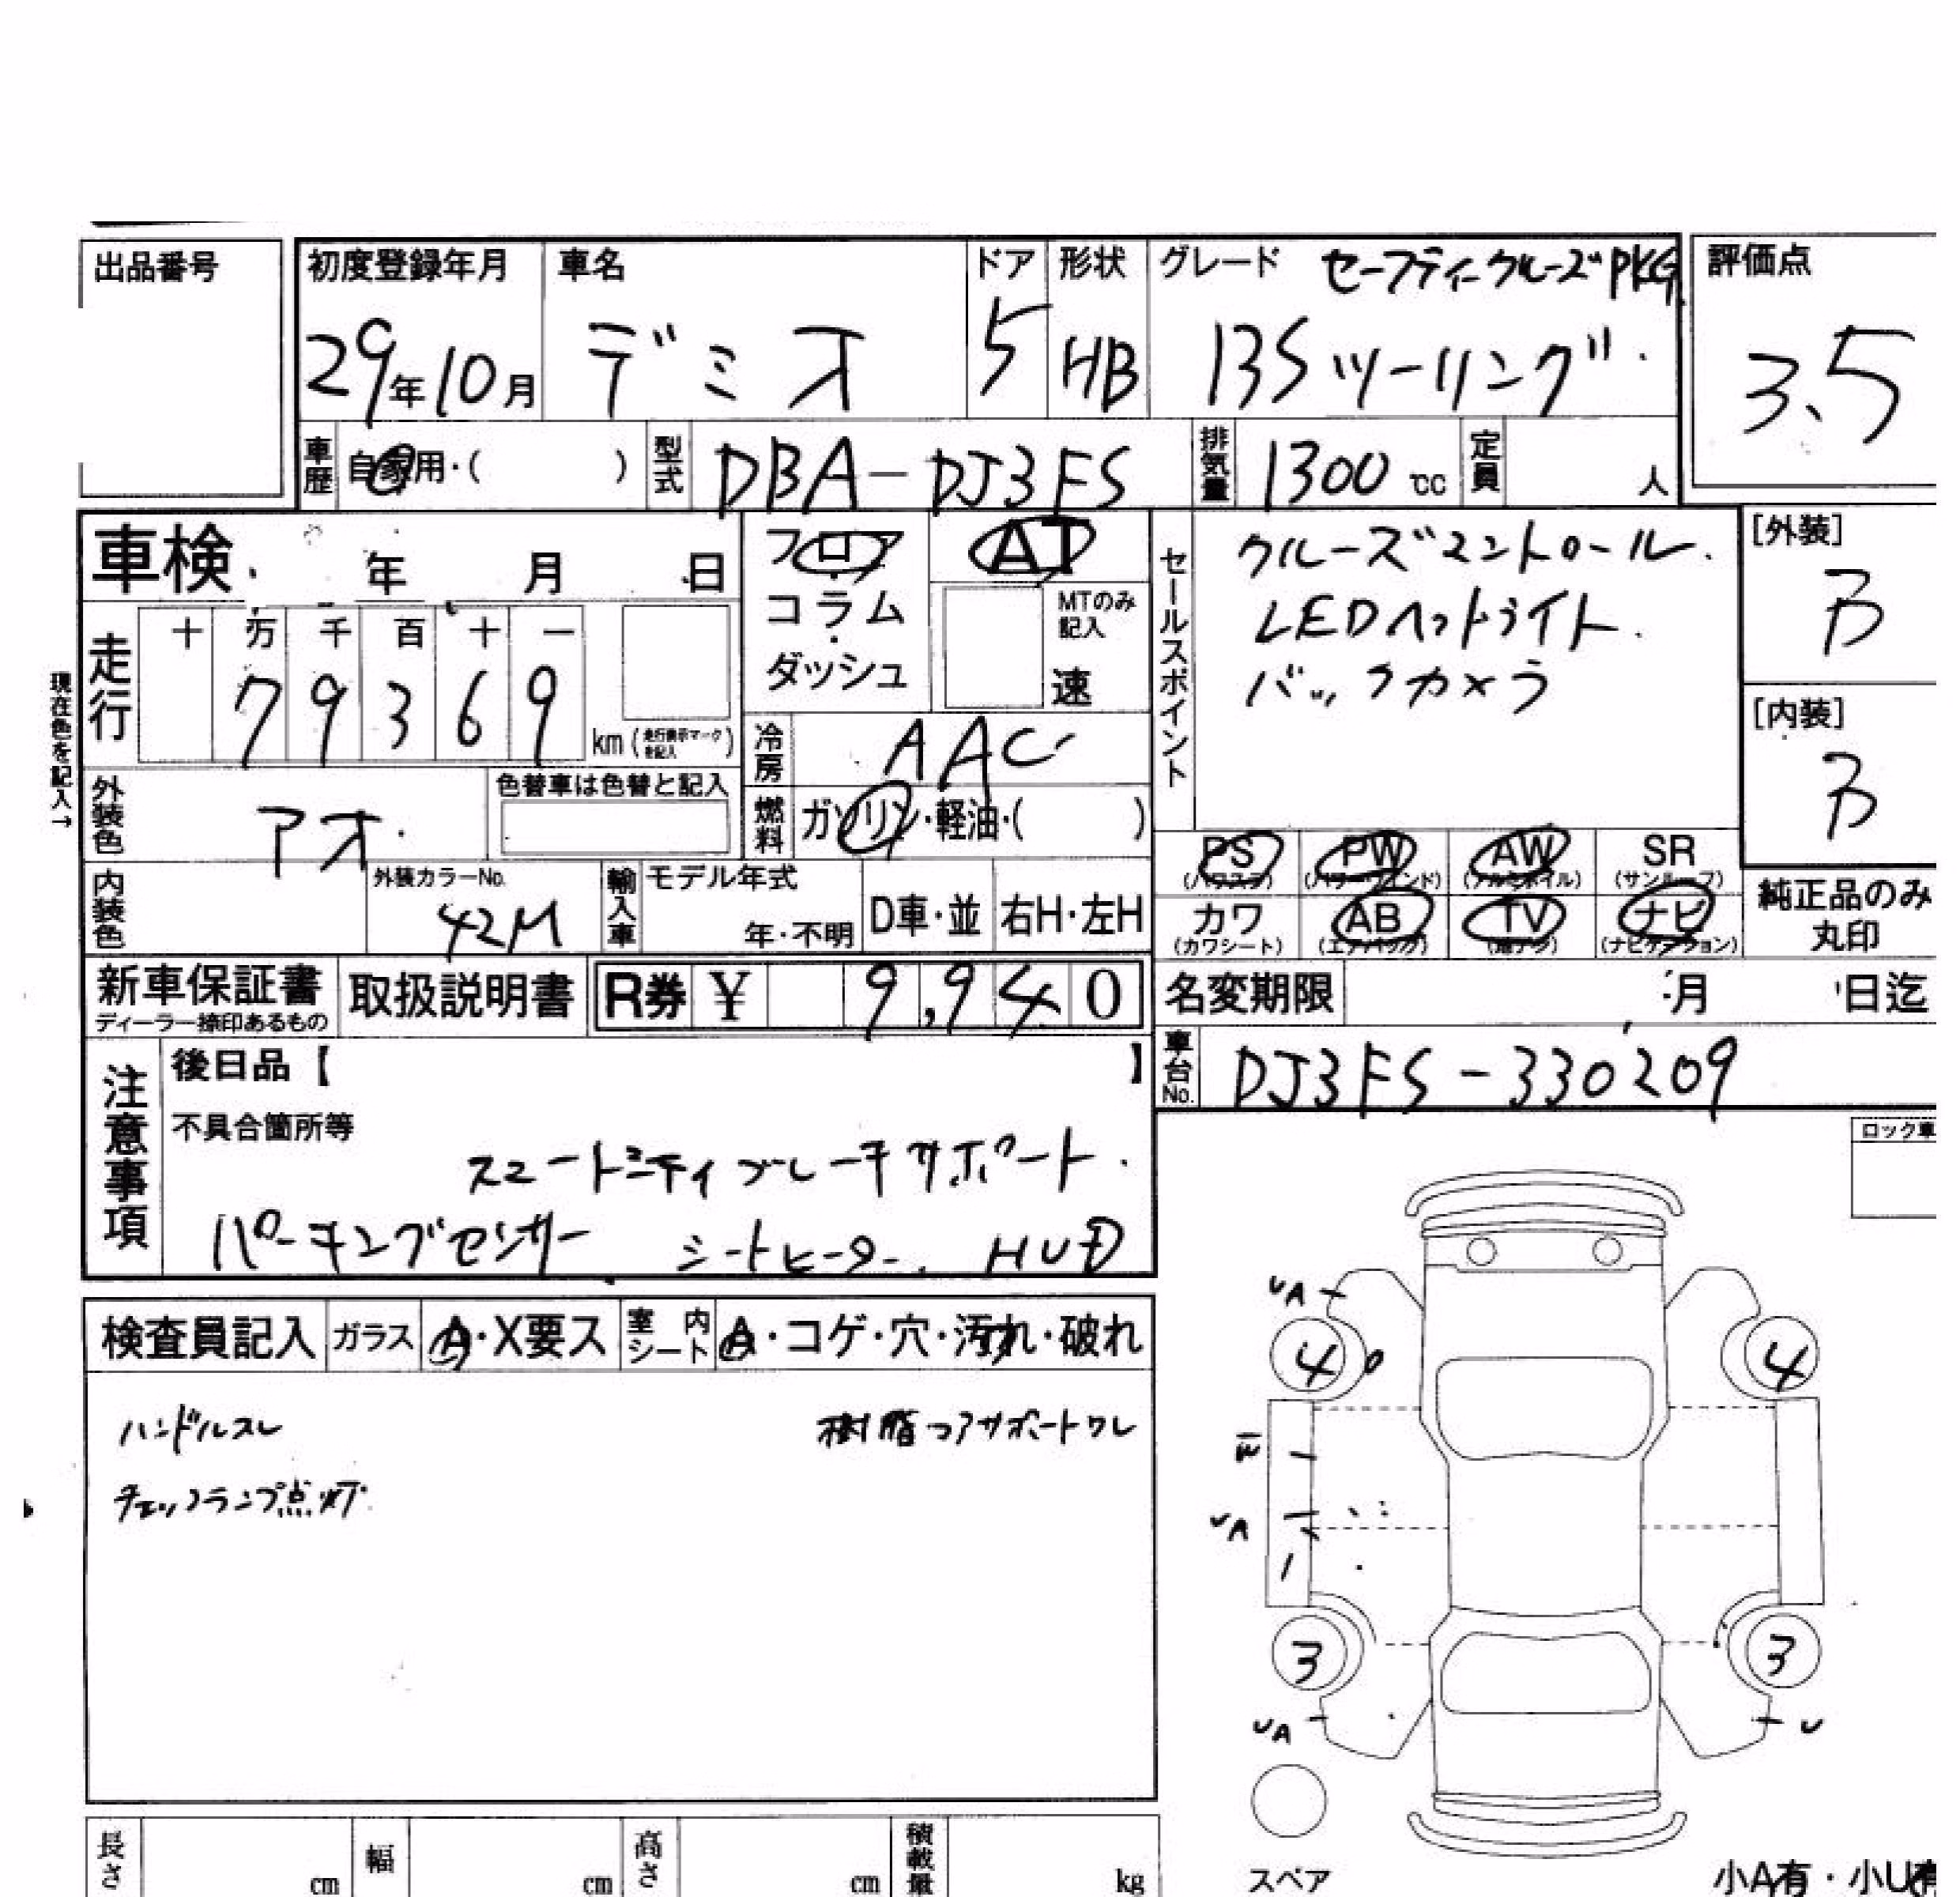 出品番号
初度登録年月 車名 ドア 形状 グレード セーフティクルーズPKG 評価点
29年10月 デミオ 5 HB 13Sツーリング 3.5
車歴 自家用・( ) 型式 DBA-DJ3FS 排気量 1300 cc 定員 人
車検 年 月 日 フロア AT セールスポイント クルーズコントロール. [外装]
コラム MTのみ記入 LEDヘッドライト. B
走行 十 万 千 百 十 一 ダッシュ 速 バックカメラ
現在色を記入→ 7 9 3 6 9 km (走行表示マークを記入) 冷房 AAC [内装]
外装色 アオ. 色替車は色替と記入 燃料 ガソリン・軽油・( ) B
PS (パワステ) PW (パワーウインド) AW (アルミホイル) SR (サンルーフ)
内装色 外装カラーNo. 42M 輸入車 モデル年式 年・不明 D車・並 右H・左H カワ (カワシート) AB (エアバック) TV (地デジ) ナビ (ナビゲーション) 純正品のみ丸印
新車保証書 ディーラー捺印あるもの 取扱説明書 R券 ¥ 9,940 名変期限 月 日迄
車台No. DJ3FS-330209
注意事項 後日品【 】
不具合箇所等 ロック車
スマートシティブレーキサポート.
パーキングセンサー シートヒーター. HUD
検査員記入 ガラス A・X要ス 室内シート A・コゲ・穴・汚れ・破れ
ハンドルスレ 樹脂コアサポートワレ
チェックランプ点灯
UA
4 4
UA
3 3
UA U
長さ cm 幅 cm 高さ cm 積載量 kg スペア 小A有・小U有